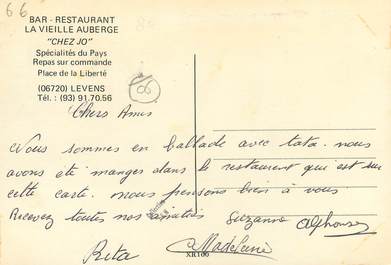 6 6
BAR - RESTAURANT
LA VIEILLE AUBERGE
"CHEZ JO"
Spécialités du Pays
Repas sur commande
Place de la Liberté
(06720) LEVENS
Tél. : (93) 91.70.56
06
Chers Amis
Nous sommes en ballade avec tata. nous
avons été manges dans le restaurent qui est sur
cette carte. nous pensons bien à vous
Recevez toutes nos amitiés Suzanne Alphonse
Rita Madeleine
XR100